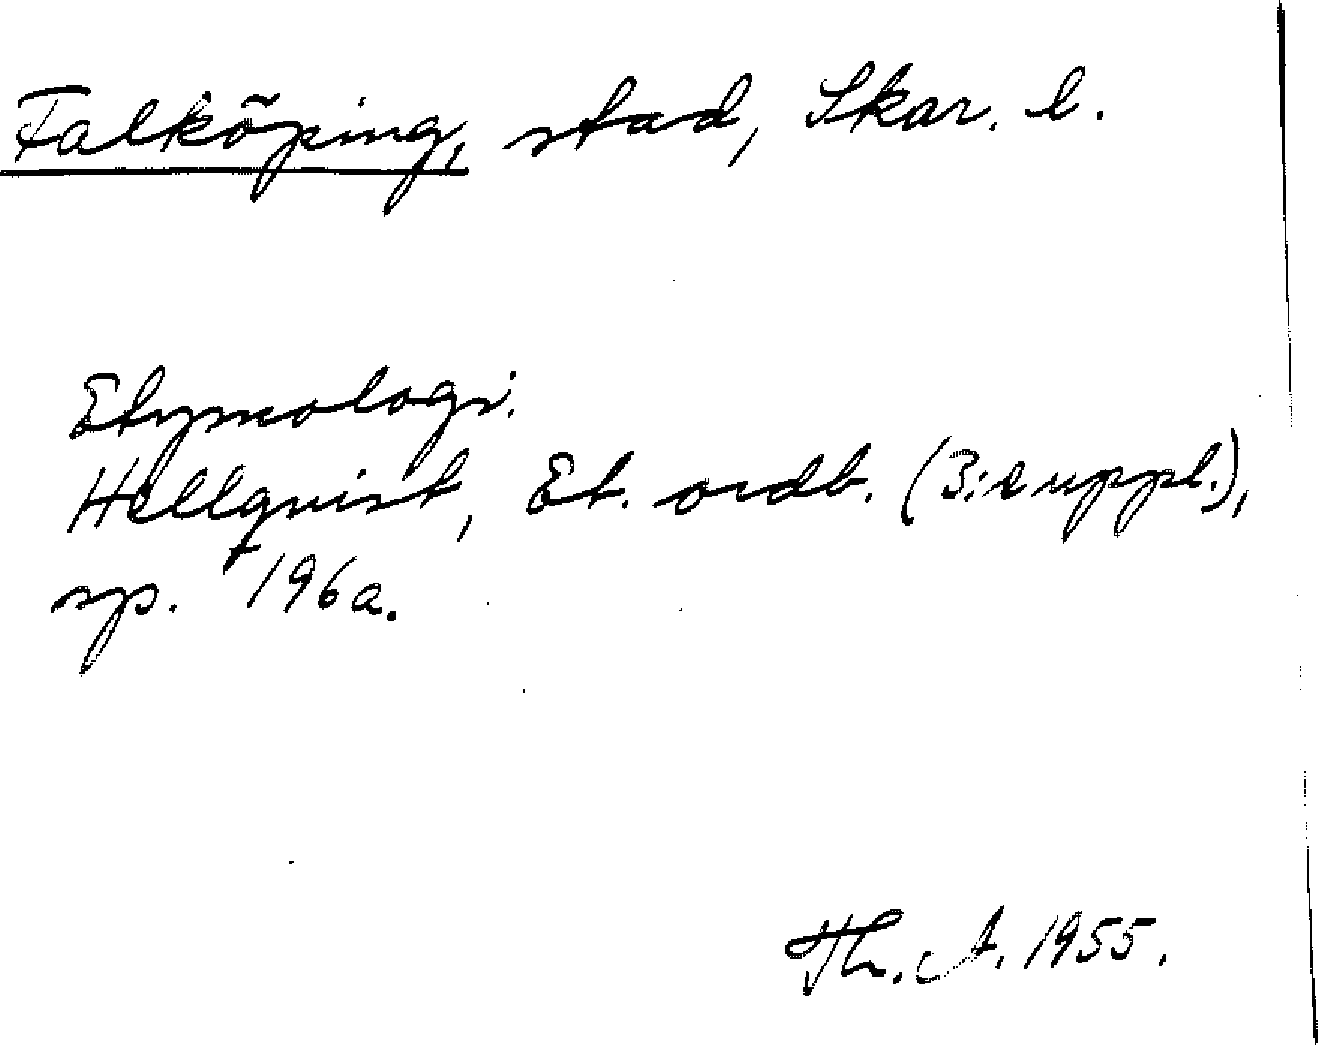 Falköping, stad, Skar. l.
Etymologi.
Hellquist, Et. ordb. (3:e uppl.),
sp. 196a.
Th. A. 1955.